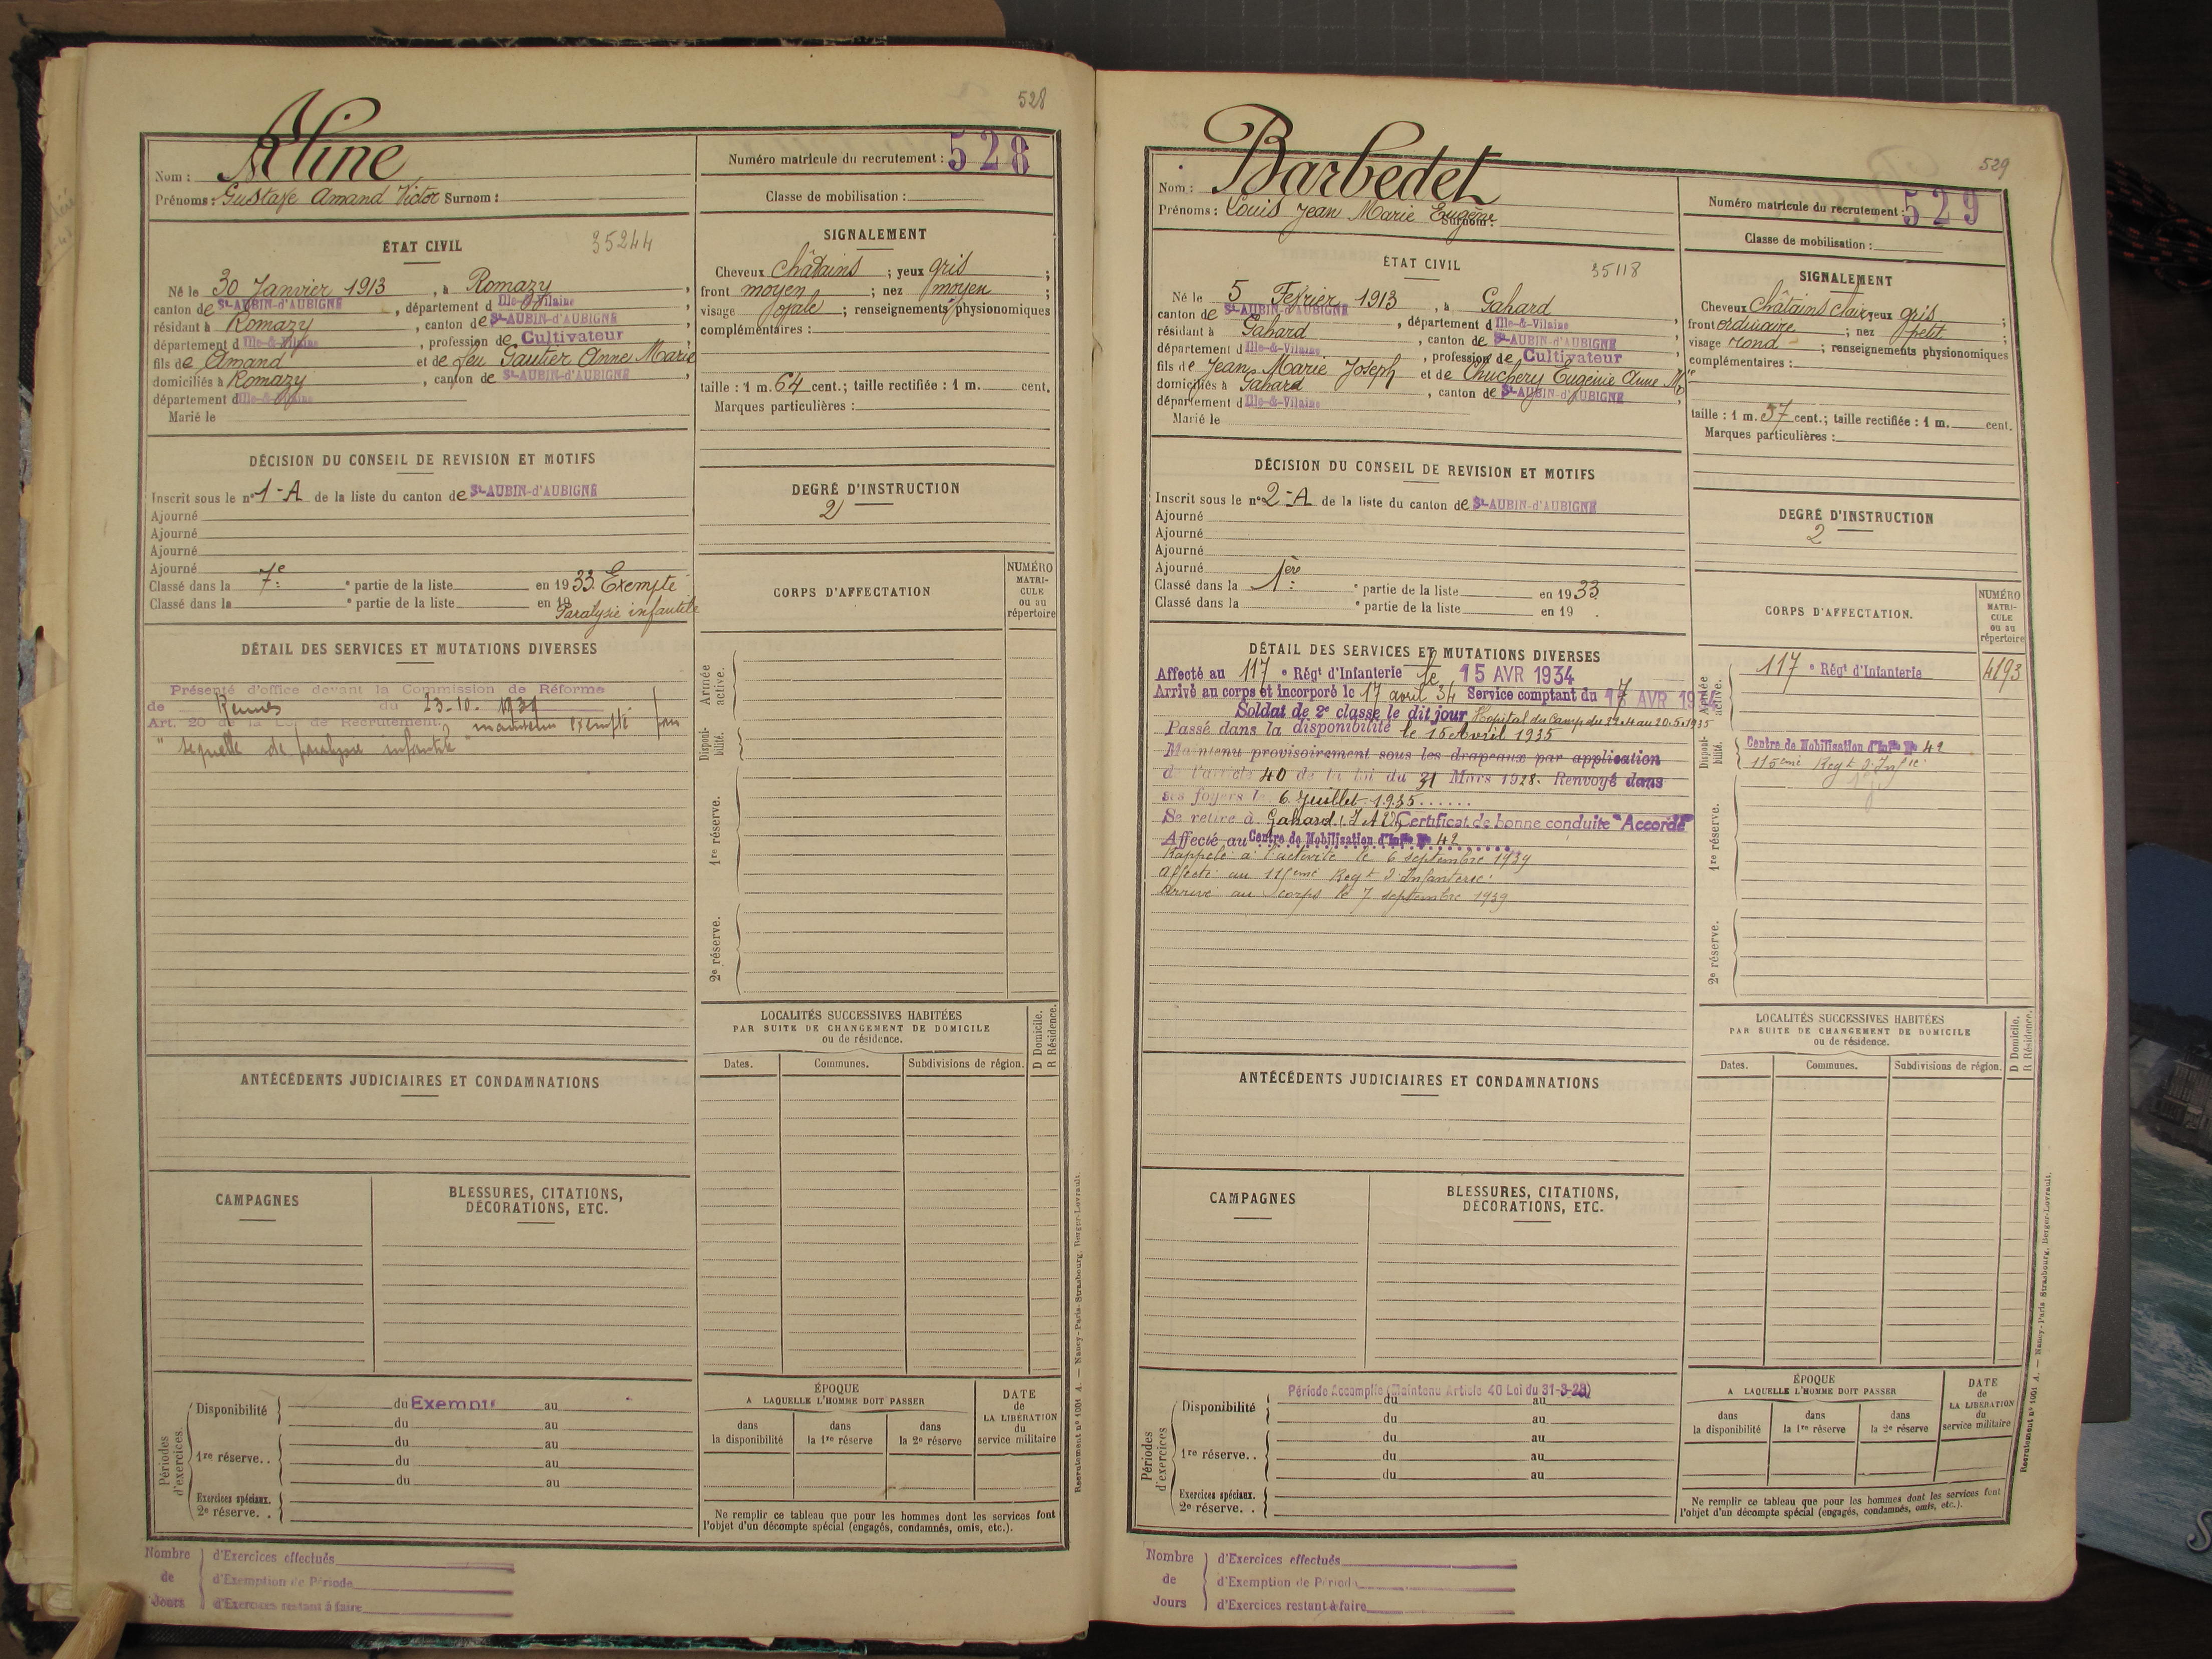 528
Aline
Nom :
Prénoms : Gustave Amand Victor Surnom :
Numéro matricule du recrutement : 528
Classe de mobilisation :
ÉTAT CIVIL 35244
Né le 30 Janvier 1913, à Romazy,
canton de St-AUBIN-d'AUBIGNÉ, département d Ille-&-Vilaine
résidant à Romazy, canton de St-AUBIN-d'AUBIGNÉ,
département d Ille-&-Vilaine, profession de Cultivateur,
fils de Amand et de feu Gautier Anne Marie
domiciliés à Romazy, canton de St-AUBIN-d'AUBIGNÉ,
département d Ille-&-Vilaine
Marié le
SIGNALEMENT
Cheveux châtains ; yeux gris ;
front moyen ; nez moyen ;
visage ovale ; renseignements physionomiques
complémentaires :
taille : 1 m. 64 cent.; taille rectifiée : 1 m. cent.
Marques particulières :
DÉCISION DU CONSEIL DE REVISION ET MOTIFS
Inscrit sous le n° 1-A de la liste du canton de St-AUBIN-d'AUBIGNÉ
Ajourné
Ajourné
Ajourné
Ajourné
Classé dans la 7e ° partie de la liste en 1933 Exempté
Classé dans la ° partie de la liste en 19
Paralysie infantile
DEGRÉ D'INSTRUCTION
2
CORPS D'AFFECTATION
NUMÉRO MATRI-CULE ou au répertoire
DÉTAIL DES SERVICES ET MUTATIONS DIVERSES
Présenté d'office devant la Commission de Réforme
de Rennes du 23-10-1939
Art. 20 de la Loi de Recrutement. maintenu exempté pour
" séquelle de paralysie infantile
Armée active.
Disponibilité.
1re réserve.
2e réserve.
LOCALITÉS SUCCESSIVES HABITÉES
PAR SUITE DE CHANGEMENT DE DOMICILE
ou de résidence.
D Domicile.
R Résidence.
Dates. Communes. Subdivisions de région.
ANTÉCÉDENTS JUDICIAIRES ET CONDAMNATIONS
CAMPAGNES
BLESSURES, CITATIONS,
DÉCORATIONS, ETC.
Périodes d'exercices.
Disponibilité du Exempté au
du au
1re réserve. . du au
du au
du au
Exercices spéciaux.
2e réserve. .
ÉPOQUE
A LAQUELLE L'HOMME DOIT PASSER
dans la disponibilité
dans la 1re réserve
dans la 2e réserve
DATE de LA LIBÉRATION du service militaire
Ne remplir ce tableau que pour les hommes dont les services font
l'objet d'un décompte spécial (engagés, condamnés, omis, etc.).
Recrutement n° 1001 A. — Nancy-Paris-Strasbourg, Berger-Levrault.
Nombre de Jours
d'Exercices effectués
d'Exemption de Période
d'Exercices restant à faire
529
Barbedet
Nom :
Prénoms : Louis Jean Marie Eugène
Surnom :
Numéro matricule du recrutement : 529
Classe de mobilisation :
ÉTAT CIVIL 35118
Né le 5 Février 1913, à Gahard
canton de St-AUBIN-d'AUBIGNÉ, département d Ille-&-Vilaine
résidant à Gahard, canton de St-AUBIN-d'AUBIGNÉ
département d Ille-&-Vilaine, profession de Cultivateur
fils de Jean Marie Joseph et de Chuchery Eugénie Anne Mie
domiciliés à Gahard, canton de St-AUBIN-d'AUBIGNÉ,
département d Ille-&-Vilaine
Marié le
SIGNALEMENT
Cheveux Châtains clair yeux gris ;
front ordinaire ; nez petit ;
visage rond ; renseignements physionomiques
complémentaires :
taille : 1 m. 57 cent.; taille rectifiée : 1 m. cent.
Marques particulières :
DÉCISION DU CONSEIL DE REVISION ET MOTIFS
Inscrit sous le n° 2-A de la liste du canton de St-AUBIN-d'AUBIGNÉ
Ajourné
Ajourné
Ajourné
Ajourné
Classé dans la 1ère ° partie de la liste en 1933
Classé dans la ° partie de la liste en 19
DEGRÉ D'INSTRUCTION
2
CORPS D'AFFECTATION.
NUMÉRO MATRI-CULE ou au répertoire
117 ° Régt d'Infanterie 4193
Centre de Mobilisation d'Infie N° 42
115ème Regt d'Infie
DÉTAIL DES SERVICES ET MUTATIONS DIVERSES
Affecté au 117 ° Régt d'Infanterie le 15 AVR 1934
Arrivé au corps et incorporé le 17 avril 34 Service comptant du 15 AVR 1934
Soldat de 2e classe le dit jour Hôpital du Camp du 29.4 au 20.5.1935
Passé dans la disponibilité le 15 Avril 1935
Maintenu provisoirement sous les drapeaux par application
de l'article 40 de la loi du 31 Mars 1928. Renvoyé dans
ses foyers le 6 Juillet 1935
Se retire à Gahard (I et V) Certificat de bonne conduite "Accordé"
Affecté au Centre de Mobilisation d'Infie N° 42
Rappelé à l'activité le 6 septembre 1939
Affecté au 115ème Regt d'Infanterie
Arrivé au corps le 7 septembre 1939
Armée active.
Disponibilité.
1re réserve.
2e réserve.
LOCALITÉS SUCCESSIVES HABITÉES
PAR SUITE DE CHANGEMENT DE DOMICILE
ou de résidence.
D Domicile.
R Résidence.
Dates. Communes. Subdivisions de région.
ANTÉCÉDENTS JUDICIAIRES ET CONDAMNATIONS
CAMPAGNES
BLESSURES, CITATIONS,
DÉCORATIONS, ETC.
Période Accomplie (Maintenu Article 40 Loi du 31-3-28)
Périodes d'exercices
Disponibilité du au
du au
1re réserve. . du au
du au
du au
Exercices spéciaux.
2e réserve. .
ÉPOQUE
A LAQUELLE L'HOMME DOIT PASSER
dans la disponibilité
dans la 1re réserve
dans la 2e réserve
DATE de LA LIBÉRATION du service militaire
Ne remplir ce tableau que pour les hommes dont les services font
l'objet d'un décompte spécial (engagés, condamnés, omis, etc.).
Recrutement n° 1001 A. — Nancy-Paris-Strasbourg, Berger-Levrault.
Nombre de Jours
d'Exercices effectués
d'Exemption de Période
d'Exercices restant à faire